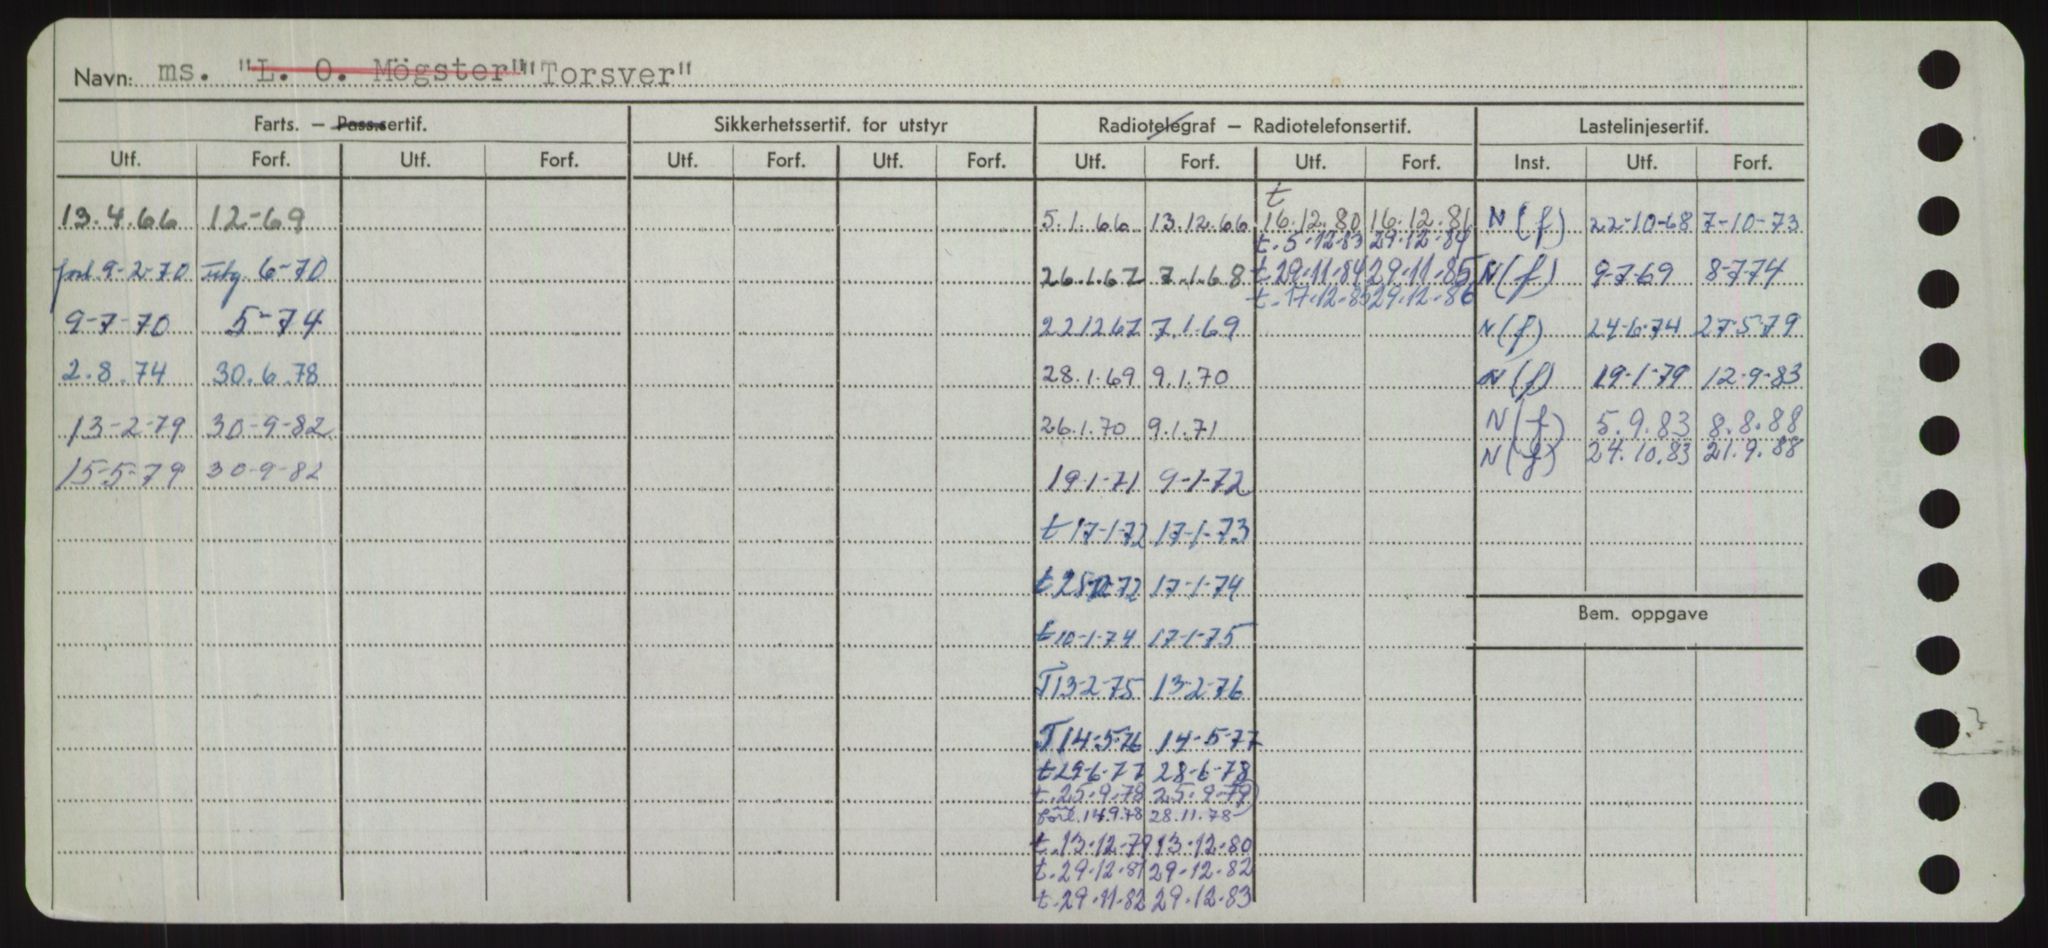 Navn: ms. "L. O. Mögster" "Torsver"
Farts. — Pass.sertif. Sikkerhetssertif. for utstyr Radiotelegraf — Radiotelefonsertif. Lastelinjesertif.
Utf. Forf. Utf. Forf. Utf. Forf. Utf. Forf. Utf. Forf. Utf. Forf. Inst. Utf. Forf.
t
13.4.66 12-69 5.1.66 13.12.66 16.12.80 16.12.81 N(f) 22-10-68 7-10-73
t.5.12.83 29.12.84
forl 9-2-70 utg. 6-70 26.1.67 7.1.68 t.29.11.84 29.11.85 N(f) 9-7-69 8-7-74
t.17.12.85 29.12.86
9-7-70 5-74 22.12.67 7.1.69 N(f) 24-6-74 27-5-79
2.8.74 30.6.78 28.1.69 9.1.70 N(f) 19-1-79 12-9-83
13-2-79 30-9-82 26.1.70 9.1.71 N(f) 5.9.83 8.8.88
15-5-79 30-9-82 19-1-71 9-1-72 N(f) 24.10.83 21.9.88
t 17-1-72 17-1-73
t 17-1-74
Bem. oppgave
t 10-1-74 17-1-75
T 13-2-75 13-2-76
T 14-5-76 14-5-77
t 29-6-77 28-6-78
t.25.9.78 25.9.79)
forl. 14.9.78 28.11.78
t.13.12.79 13.12.80
t.29.12.81 29.12.82
t.29.11.82 29.12.83